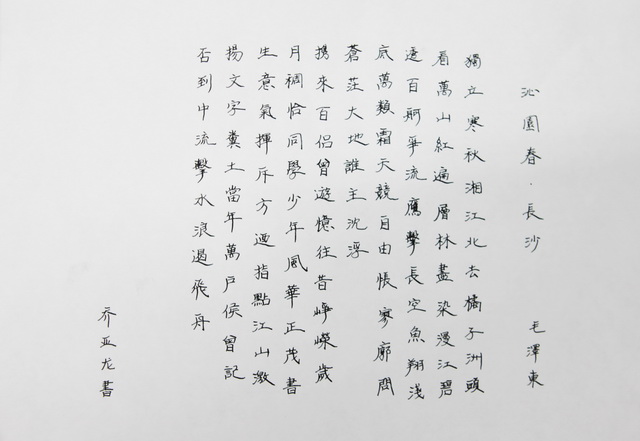 沁園春·長沙
毛澤東
獨立寒秋湘江北去橘子洲頭
看萬山紅遍層林盡染漫江碧
透百舸爭流鷹擊長空魚翔淺
底萬類霜天競自由帳寥廓問
蒼茫大地誰主沈浮
携來百侣曾遊憶往昔崢嶸歲
月稠恰同學少年風華正茂書
生意氣揮斥方遒指點江山激
揚文字糞土當年萬戶侯曾記
否到中流擊水浪遏飛舟
乔亚龙書